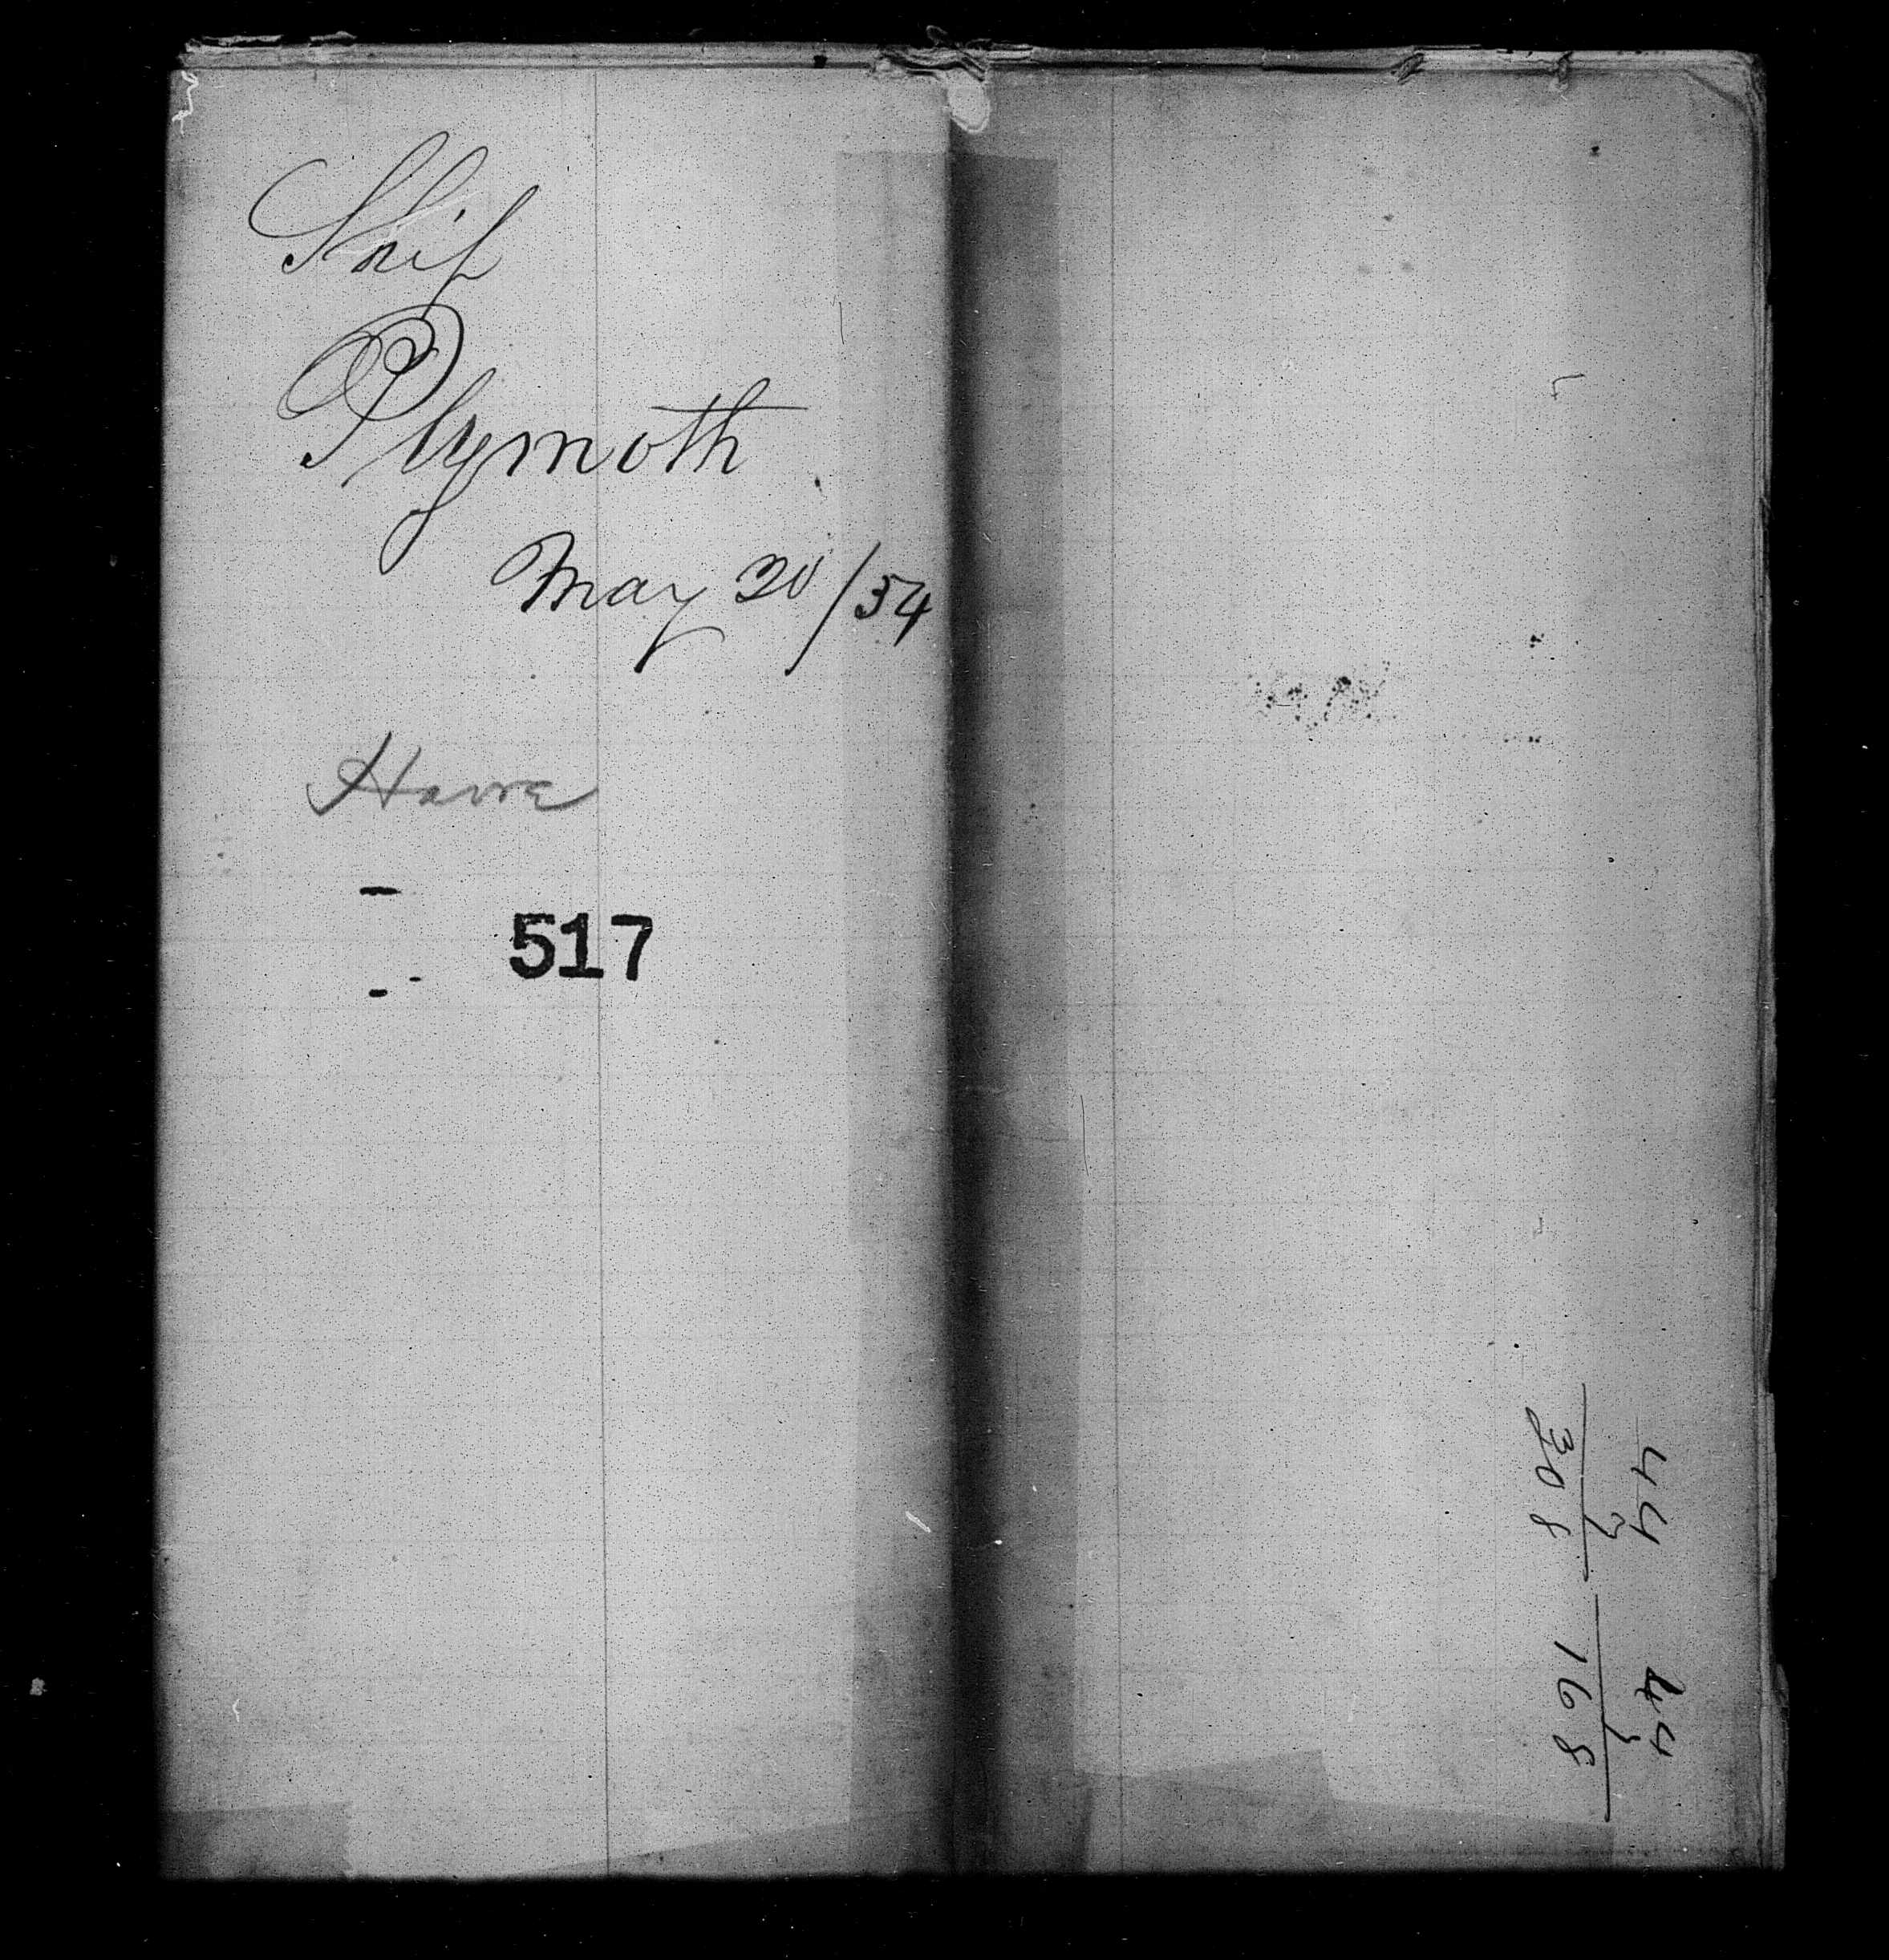 Ship
Plymoth
May 20/54
Havre
517
44
7
308
44
168